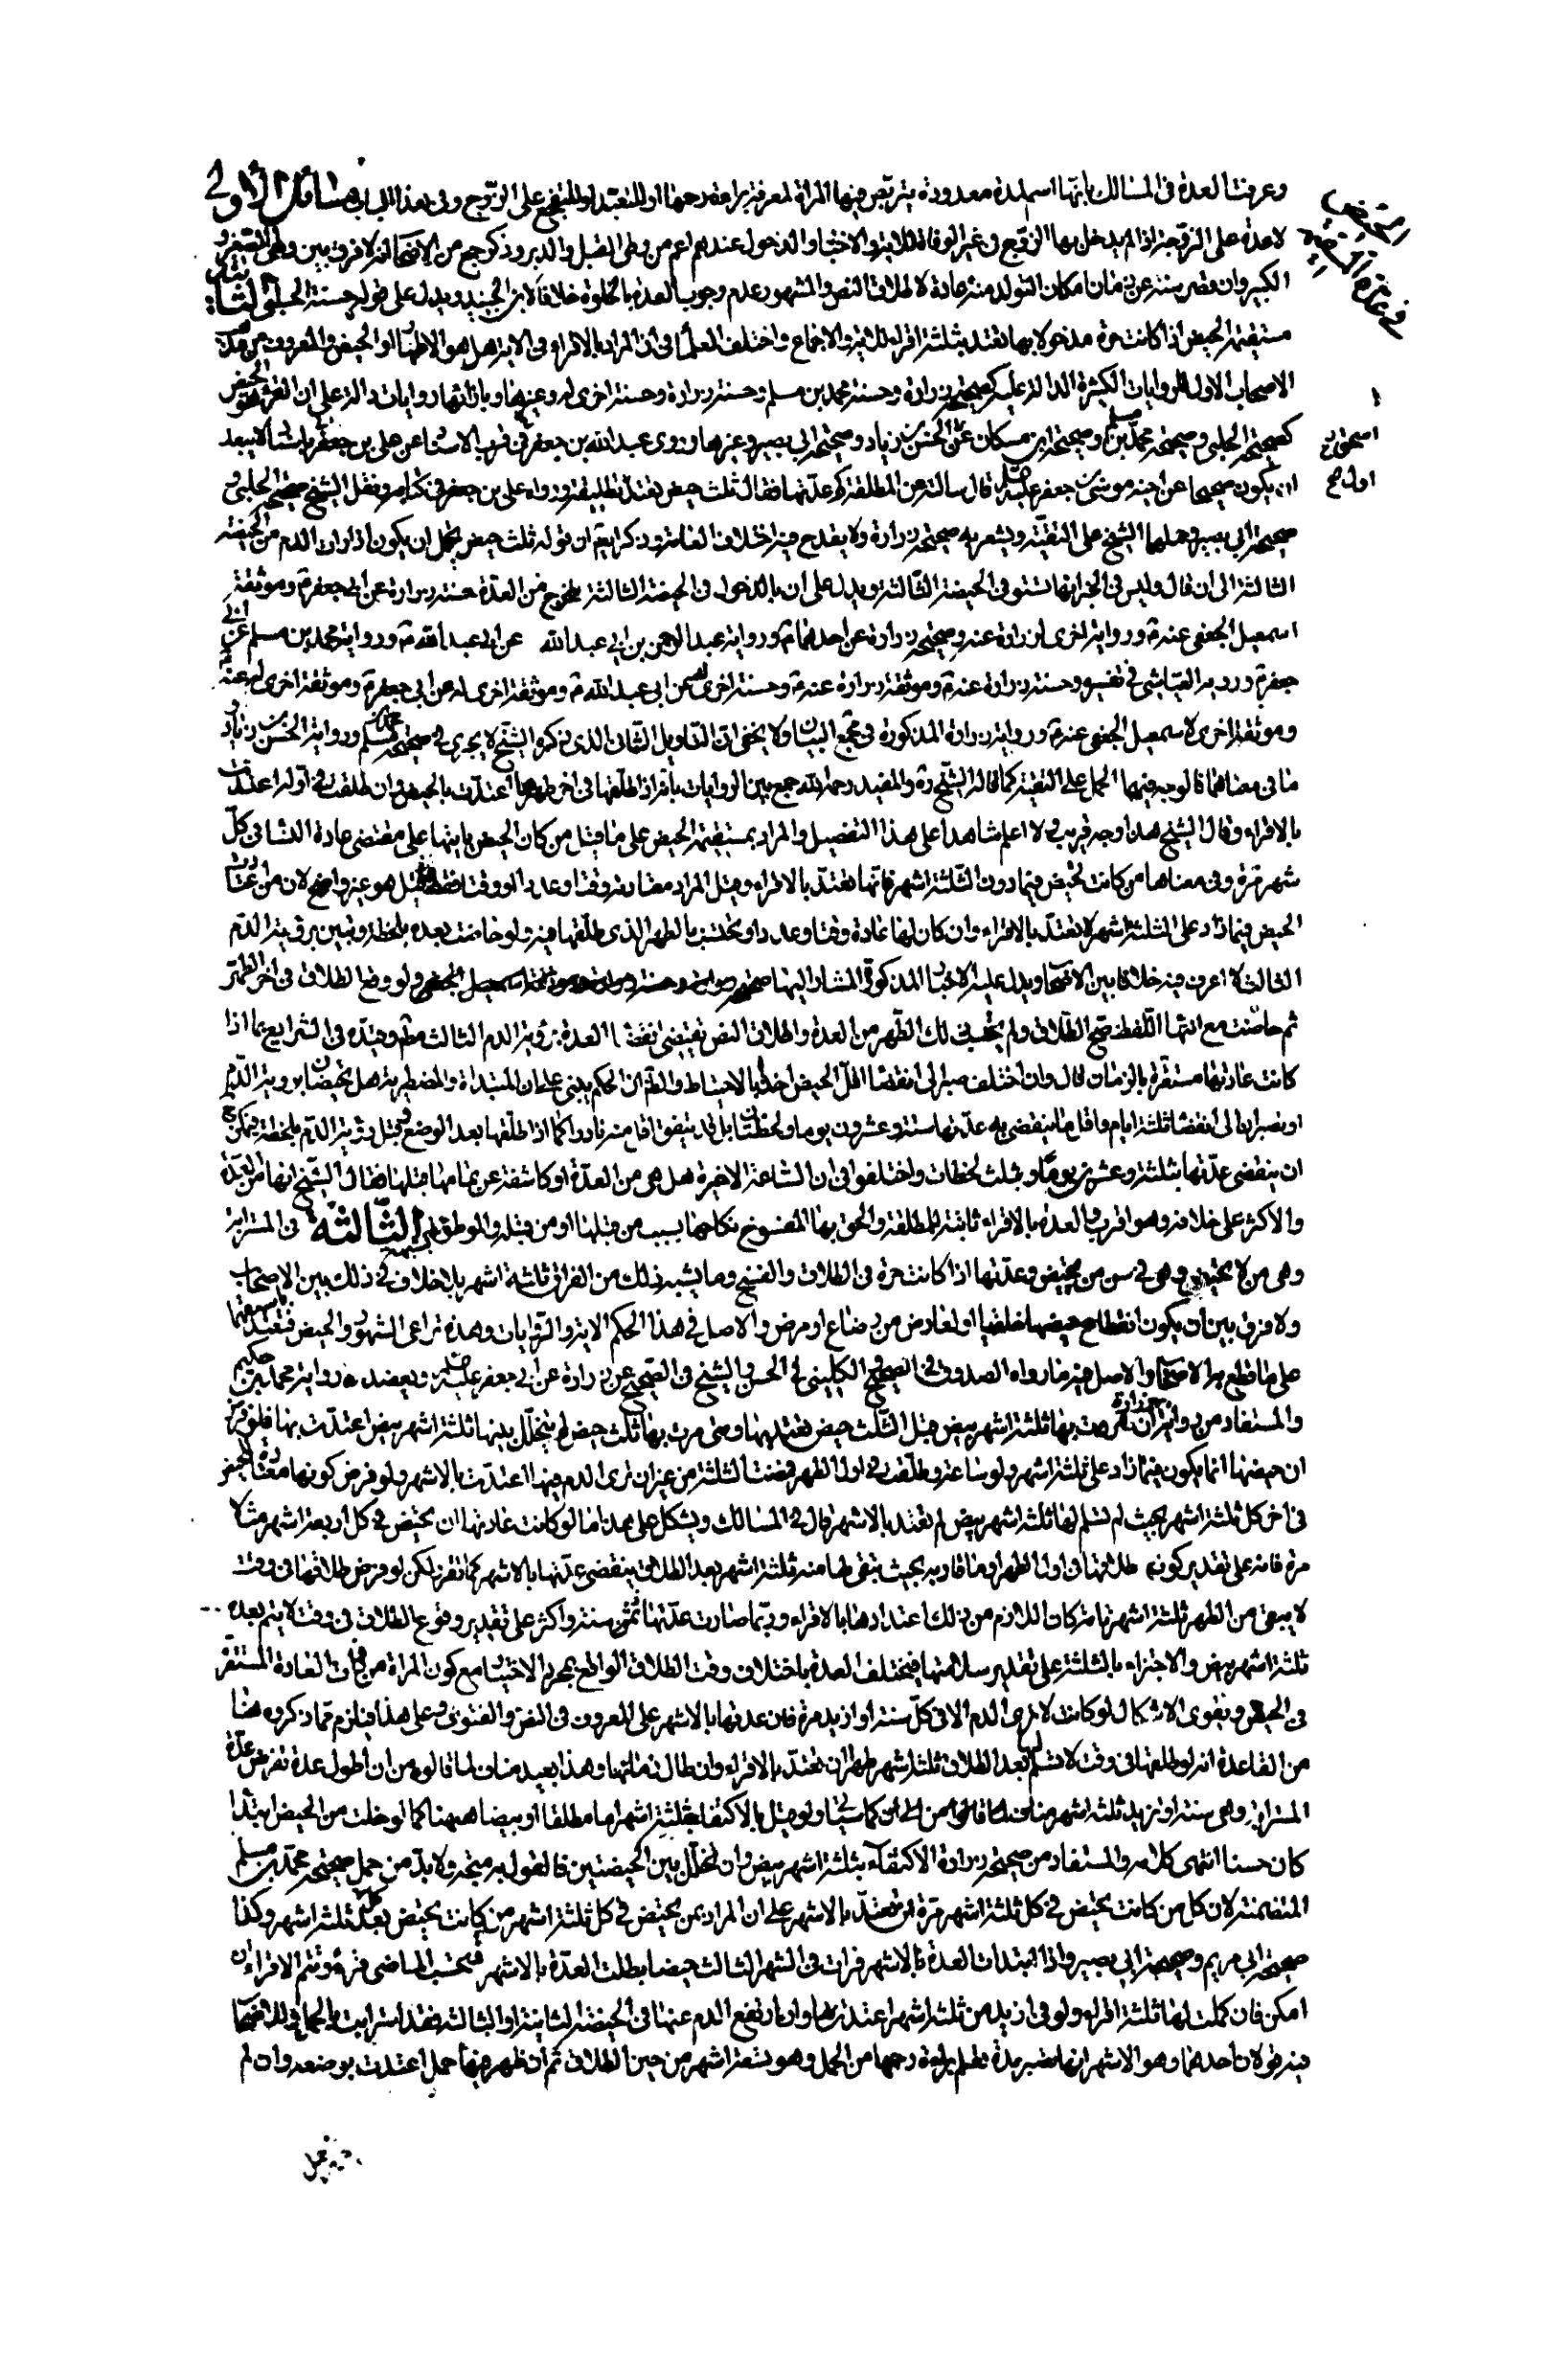 وعرفت العدة في المسالك بانها اسم لمدة معدودة يتربص فيها المراة لمعرفة براءة رحمها او للتعبد او للتفجع على الزوج وفى هذا الباب مسائل الأولى
لا عدة على الزوجة اذا لم يدخل بها الزوج في غير الوفاة للاية والاخبار والدخول عندهم اعم من وطى القبل والدبر وذكر جمع من الاصحاب انه لا فرق بين وطى الصغير و
الكبير وان نقص سنه عن زمان امكان التولد منه عادة لاطلاق النص والمشهور عدم وجوب العدة بالخلوة خلافا لابن الجنيد ويدل على قوله حسنة الحلبى الثانية
مستقيمة الحيض اذا كانت حرة مدخولا بها تعتد بثلثة اقراء للاية والاجماع واختلف العلماء فى ان المراد بالاقراء فى الاية هل هو الاطهار او الحيض والمعروف من مذهب
الاصحاب الاول للروايات الكثيرة الدالة عليه كصحيحة زرارة وحسنة محمد بن مسلم وحسنة زرارة وحسنة اخرى له وغيرها وبازائها روايات دالة على ان القرء هو الحيض
كصحيحة الحلبى وصحيحة محمد بن مسلم وصحيحة ابن مسكان عن الحسن بن زياد وصحيحة ابى بصير وغيرها وروى عبد الله بن جعفر فى قرب الاسناد عن على بن جعفر باسناد لا يبعد
ان يكون صحيحا عن اخيه موسى بن جعفر عليه السلام قال سالته عن المطلقة كم عدتها فقال ثلث حيض تعتد تطليقة ورواه على بن جعفر فى كتابه ونقل الشيخ صحيحة الحلبى و
صحيحة ابى بصير وحملهما الشيخ على التقية ويشعر به صحيحة زرارة ولا يقدح فيه اختلاف العامة وذكر ايضا ان قوله ثلث حيض يحتمل ان يكون اذا رات الدم من الحيضة
الثالثة الى ان قال وليس فى الخبر انها تستوفى الحيضة الثالثة ويدل على ان بالدخول فى الحيضة الثالثة يخرج من العدة حسنة زرارة عن ابى جعفر ع وموثقة
اسمعيل الجعفى عنه ع ورواية اخرى لزرارة عنه وصحيحة زرارة عن احدهما ع ورواية عبد الرحمن بن ابى عبد الله عن ابى عبد الله ع ورواية محمد بن مسلم عن ابى
جعفر ع ورواية العياشى فى تفسيره وحسنة زرارة عنه ع وموثقة زرارة عنه ع وحسنة اخرى له عن ابى عبد الله ع وموثقة اخرى له عن ابى جعفر ع وموثقة اخرى له عنه ع
وموثقة اخرى لاسمعيل الجعفى عنه ع ورواية زرارة المذكورة فى مجمع البيان ولا يخفى ان التاويل الثانى الذى ذكره الشيخ لا يجرى فى صحيحة محمد بن مسلم ورواية الحسن بن زياد و
ما فى معناهما فالوجه فيهما الحمل على التقية كما قاله الشيخ ره والمفيد رحمه الله جمع بين الروايات بانه اذا طلقها فى اخر طهرها اعتدت بالحيض وان طلقت فى اوله اعتدت
بالاقراء وقال الشيخ هذا وجه قريب ولا اعلم شاهدا على هذا التفصيل والمراد بمستقيمة الحيض على ما قيل من كان الحيض ياتيها على مقتضى عادة النساء فى كل
شهر مرة وفى معناها من كانت تحيض فيما دون الثلثة اشهر فانها تعتد بالاقراء وقيل المراد معتادته وقتا وعددا او وقتا فقط قيل هو غير واضح لان من تعتاد
الحيض فيما زاد على الثلثة اشهر لا تعتد بالاقراء وان كان لها عادة وقتا وعددا وتحتسب بالطهر الذى طلقها فيه ولو حاضت بعده بلحظة وتبين برؤية الدم
الثالث لا اعرف فيه خلافا بين الاصحاب ويدل عليه الاخبار المذكورة المشار اليها ولو وقع الطلاق فى اخر الطهر
ثم حاضت مع انتهاء اللفظ صح الطلاق ولم يحتسب ذلك الطهر من العدة واطلاق النص يقتضى انقضاء العدة برؤية الدم الثالث مطلقا وقيده فى الشرايع بما اذا
كانت عادتها مستقرة بالزمان قال وان اختلف صبرت الى انقضاء اقل الحيض اخذا بالاحتياط والظاهر ان الحكم يبنى على ان المبتداة والمضطربة هل تحيضان برؤية الدم
او تصبران الى انقضاء ثلثة ايام واقل ما ينقضى به عدتها ستة وعشرون يوما ولحظتان بل قد يتفق اقل منه نادرا كما اذا طلقها بعد الوضع وقبل رؤية الدم بلحظة فيمكن
ان ينقضى عدتها بثلثة وعشرين يوما وثلث لحظات واختلفوا فى ان الساعة الاخيرة هل هى من العدة او كاشفة عن تمامها قبلها فقال الشيخ انها من العدة
والاكثر على خلافه وهو اقرب والعدة بالاقراء ثابتة للمطلقة والحق بها المفسوخ نكاحها بسبب من قبلها او من قبله والموطوئة بشبهة الثالثة فى المسترابة
وهى من لا تحيض وهى فى سن من تحيض وعدتها اذا كانت حرة فى الطلاق والفسخ وما يشبه ذلك من الفراق ثلثة اشهر بلا خلاف فى ذلك بين الاصحاب
ولا فرق بين ان يكون انقطاع حيضها خلقيا او لعارض من رضاع او مرض والاصل فى هذا الحكم الاية والروايات وهذه تراعى الشهور والحيض فتعتد باسبقهما
على ما قطع به الاصحاب والاصل فيه ما رواه الصدوق فى الصحيح والكلينى فى الحسن والشيخ فى الصحيح عن زرارة عن ابى جعفر عليه السلام ويعضده رواية محمد بن حكيم
والمستفاد من رواية زرارة ان مرت بها ثلثة اشهر بيض قبل الثلث حيض تعتد بها ومتى مرت بها ثلث حيض لم يتخلل بينها ثلثة اشهر بيض اعتدت بها فلو فرض
ان حيضها انما يكون فيما زاد على ثلثة اشهر ولو ساعة وطلقت فى اول الطهر فمضت الثلثة من غير ان ترى الدم فيها اعتدت بالاشهر ولو فرض كونها معتادة الحيض
فى اخر كل ثلثة اشهر بحيث لم تسلم لها ثلثة اشهر بيض لم تعتد بالاشهر قال فى المسالك ويشكل على هذا ما لو كانت عادتها ان تحيض فى كل اربعة اشهر مثلا
مرة فانه على تقدير كونه طلاقها فى اول الطهر او ما قاربه بحيث تبقى لها منه ثلثة اشهر بعد الطلاق ينقضى عدتها بالاشهر كما تقرر لكن لو فرض طلاقها فى وقت
لا يبقى من الطهر ثلثة اشهر تامة كان اللازم من ذلك اعتدادها بالاقراء وربما صارت عدتها ثمن سنة واكثر على تقدير وقوع الطلاق فى وقت لا يتم بعده
ثلثة اشهر بيض والاجتزاء بالثلثة على تقدير سلامتها فيختلف العدة باختلاف وقت الطلاق الواقع بمجرد الاختيار مع كون المراة من ذوات العادة المستقرة
فى الحيض ويقوى الاشكال لو كانت لا ترى الدم الا فى كل سنة او ازيد مرة فان عدتها بالاشهر على المعروف فى النص والفتوى وعلى هذا فيلزم مما ذكروه هنا
من القاعدة انه لو طلقها فى وقت لا تسلم لها بعد الطلاق ثلثة اشهر طهرا ان تعتد بالاقراء وان طال زمانها وهذا بعيد مناف لما قالوه من ان اطول عدة تفرض عدة
المسترابة وهى سنة او تزيد ثلثة اشهر كما سياتى ولو قيل بالاكتفاء بثلثة اشهر اما مطلقا او بيضا ههنا كما لو خلت من الحيض ابتداء
كان حسنا انتهى كلامه والمستفاد من صحيحة زرارة الاكتفاء بثلثة اشهر بيض وان تخلل بين الحيضتين فالقول به متجه ولا بد من حمل صحيحة محمد بن مسلم
المتضمنة لان كل من كانت تحيض فى كل ثلثة اشهر مرة تعتد بالاشهر على ان المراد بمن تحيض فى كل ثلثة اشهر من كانت تحيض بعد كل ثلثة اشهر وكذا
صحيحة ابى مريم وصحيحة ابى بصير واذا ابتدات العدة بالاشهر فرات فى الشهر الثالث حيضا بطلت العدة بالاشهر فتحتسب الماضى قرء وتتم الاقراء ان
امكن فان كملت لها ثلثة اقراء ولو فى ازيد من ثلثة اشهر اعتدت بها وان ارتفع الدم عنها فى الحيضة الثانية او الثالثة فقد استرابت بالحمل فللاصحاب
فيه قولان احدهما وهو الاشهر انها تصبر مدة تعلم براءة رحمها من الحمل وهو تسعة اشهر من حين الطلاق ثم ان ظهر فيها حمل اعتدت بوضعه وان لم